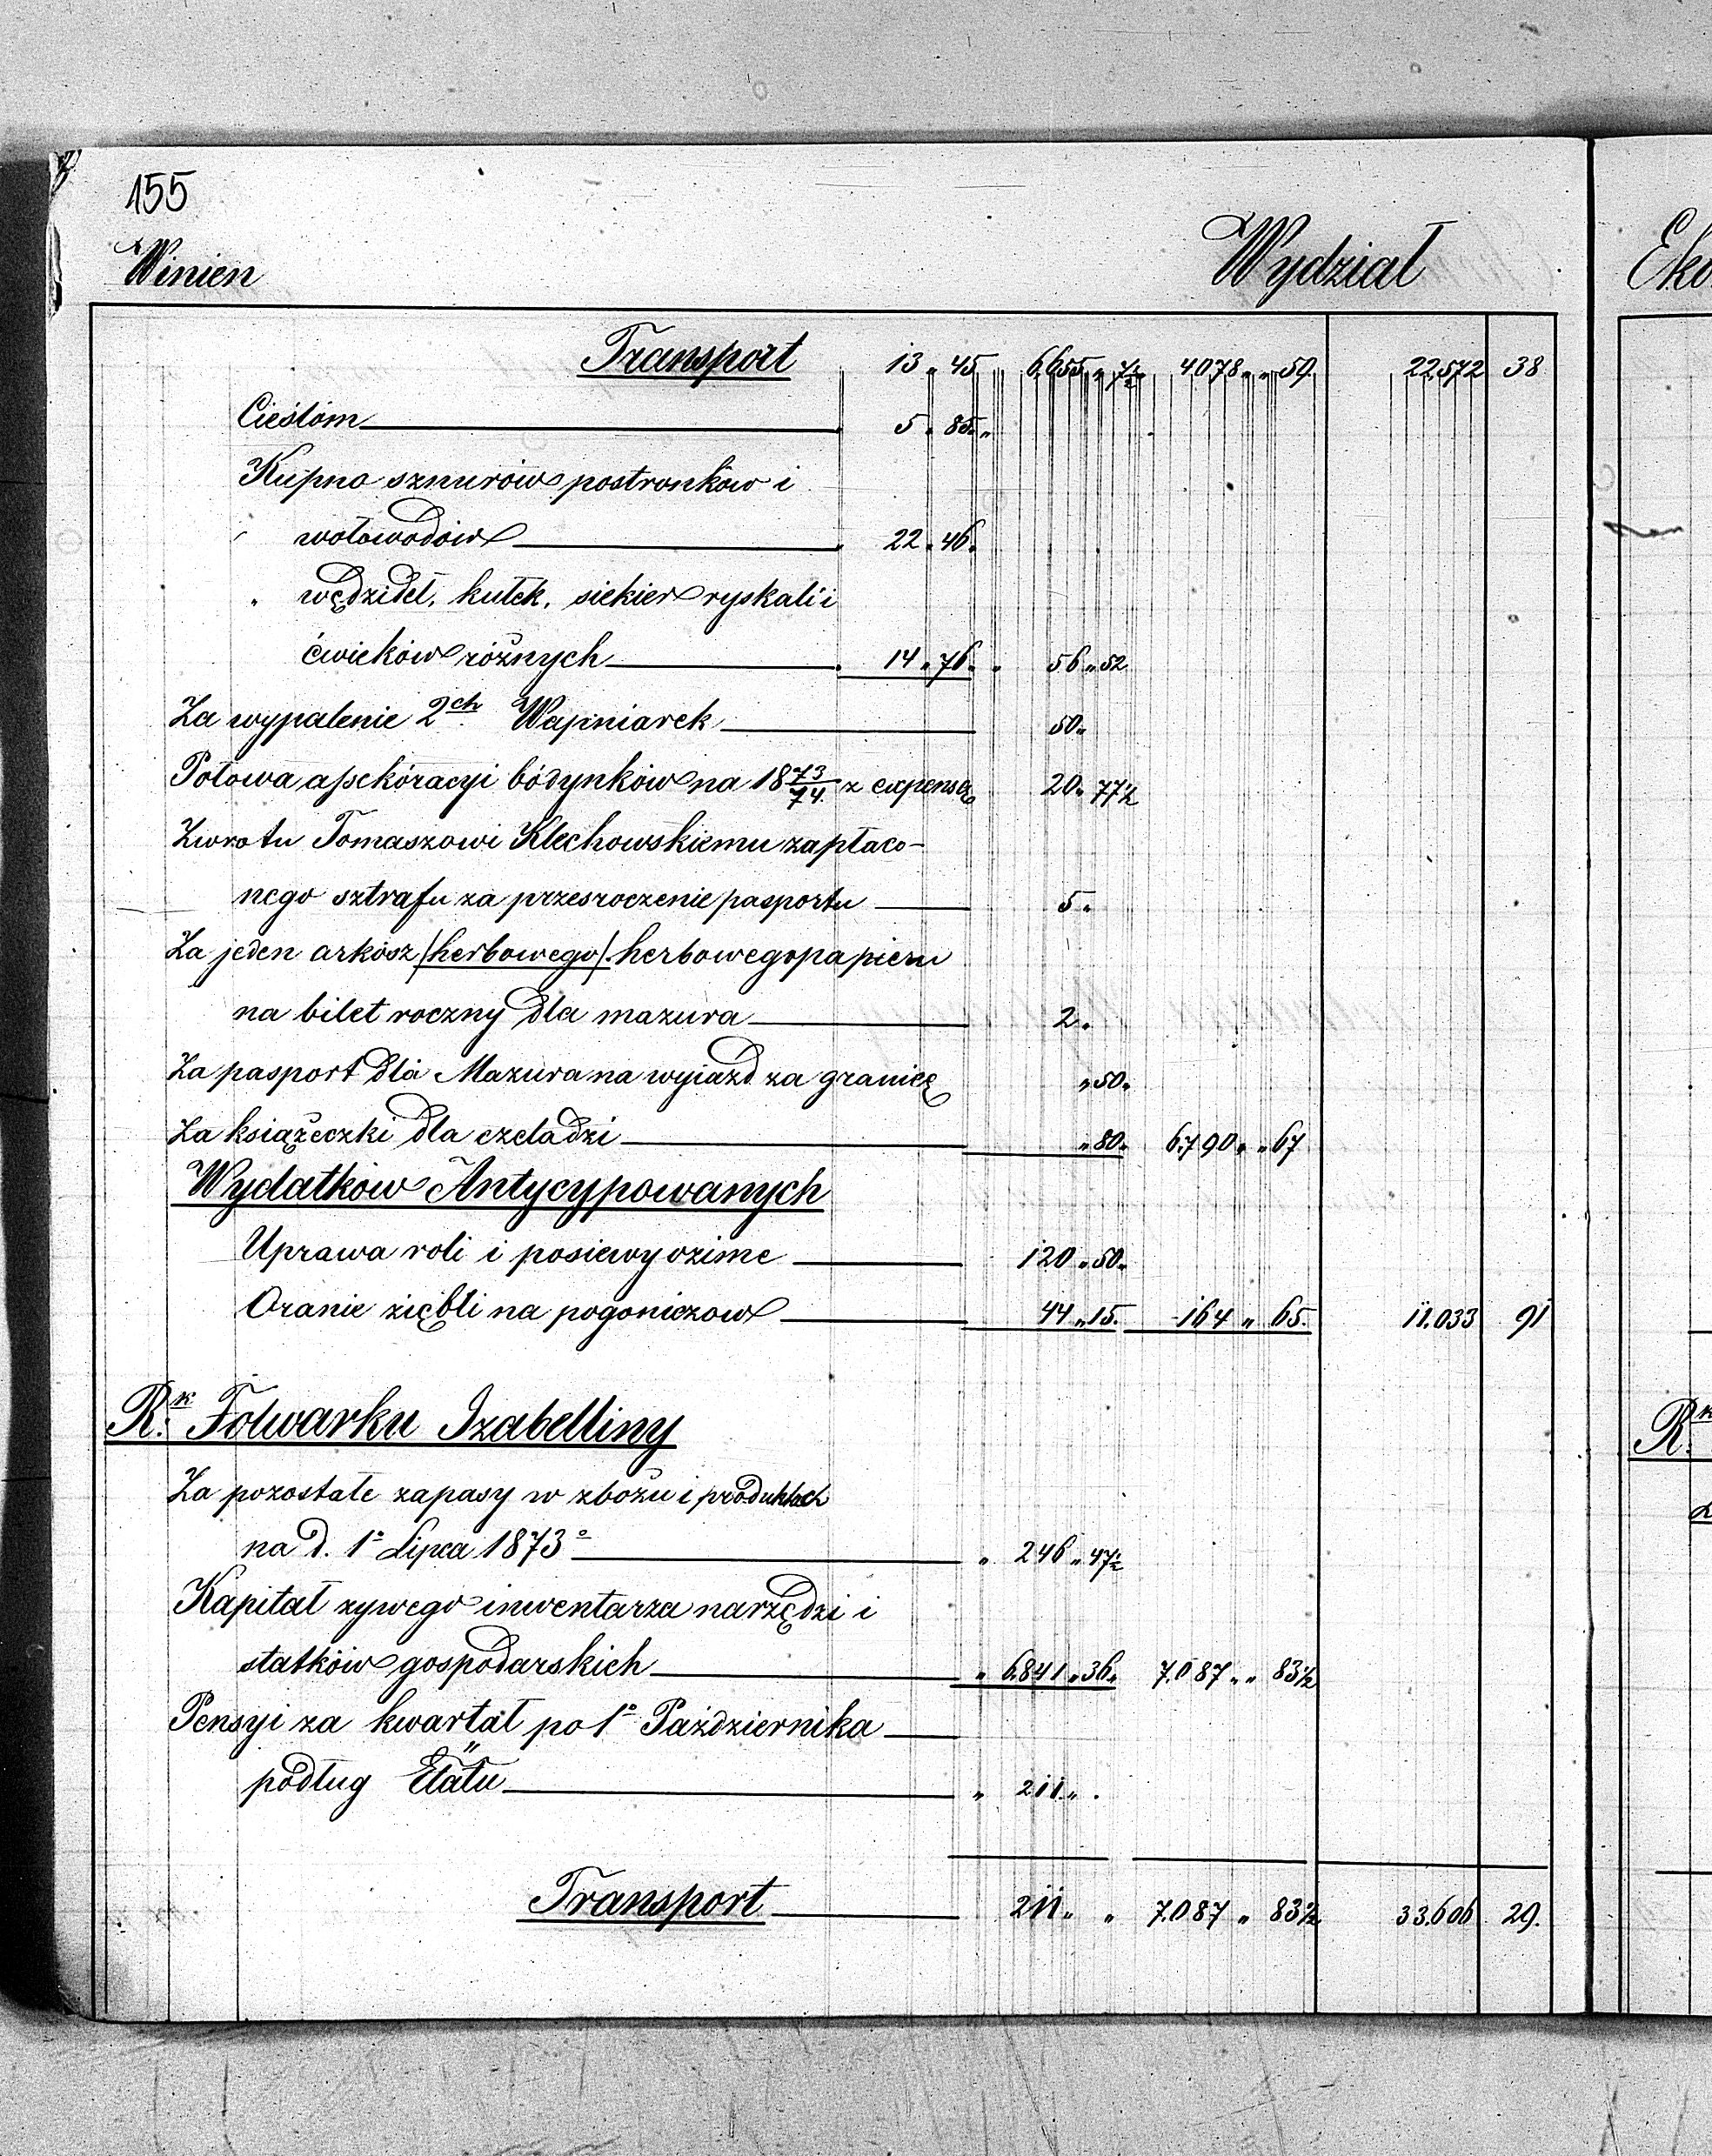 155
Winien Wydział Eko
Transport 13 „ 45 6,655 „ 7½ 4078 „ „ 59. 22,572 38
Cieślóm 5 „ 85 „
Kupno sznurów postronków i
wołowodów 22 „ 46.
„ wędzideł, kułek, siekier ryskali i
ćwieków różnych 14 „ 76 „ 56 „ 52
Za wypalenie 2ch Wapniarek 50 „
Połowa assekóracyi bódynków na 1873/74. z expensą 20 „ 77½
Zwrotu Tomaszowi Klechowskiemu zapłaco-
nego sztrafu za przesroczenie pasportu 5 „
Za jeden arkósz /herbowego/ herbowego papieru
na bilet roczny dla mazura 2 „
Za pasport dla Mazura na wyiazd za granicę „ 50 „
Za książeczki dla czeladzi „ 80 „ 6,790 „ „ 67
Wydatków Antycypowanych
Uprawa roli i posiewy ozime 120 „ 50 „
Oranie ziębli na pogoniczow 44 „ 15. 164 „ 65. 11.033 91
Rk. Folwarku Izabelliny
Za pozostałe zapasy w zbożu i produktach
na d. 1o Lipca 1873o „ 246 „ 47½
Kapitał zywego inwentarza narzędzi i
statków gospodarskich „ 6.841 „ 36 „ 7.087 „ „ 83½
Pensyi za kwartał po 1o Października
podług Etatu „ 211 „ .
Transport 211 „ „ 7.087 „ 83½ 33.606 29.
Rk